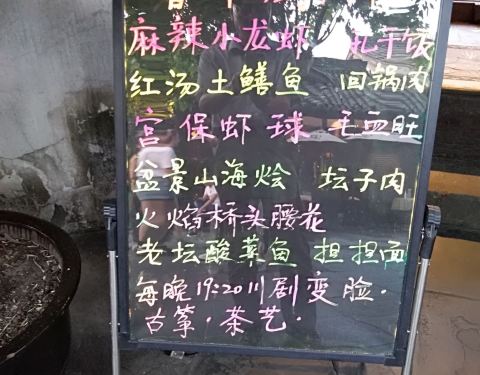 麻辣小龙虾 乳干饭
红汤土鳝鱼 回锅肉
宫保虾球 毛血旺
盆景山海烩 坛子肉
火焰桥头腰花
老坛酸菜鱼 担担面
每晚19:20川剧变脸.
古筝.茶艺.